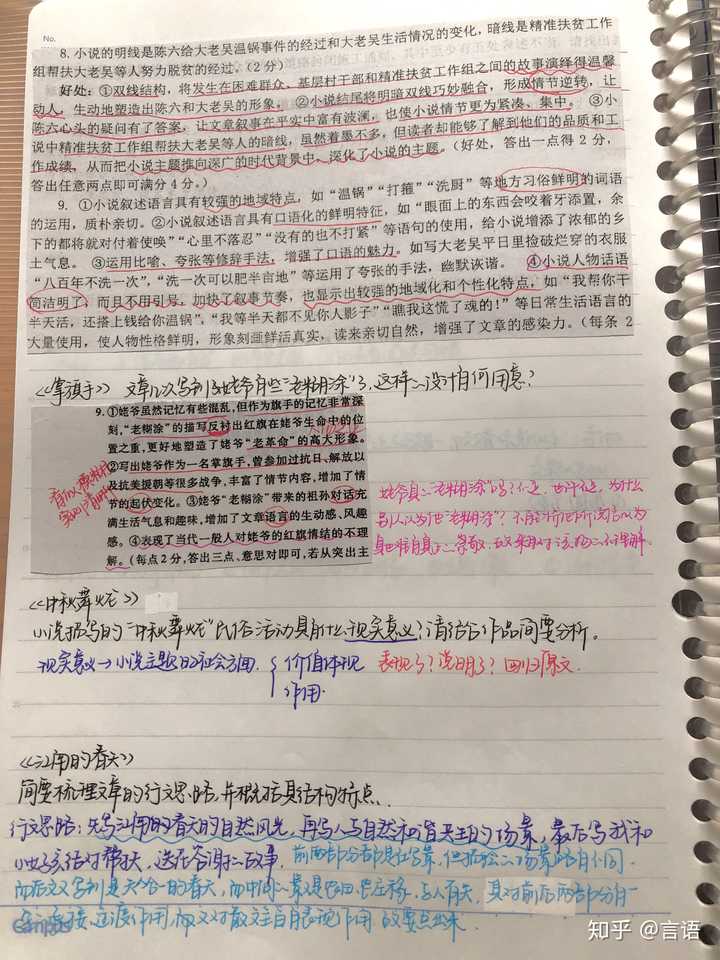 No.
8. 小说的明线是陈六给大老吴温锅事件的经过和大老吴生活情况的变化，暗线是精准扶贫工作
组帮扶大老吴等人努力脱贫的经过。（2 分）
好处：①双线结构，将发生在困难群众、基层村干部和精准扶贫工作组之间的故事演绎得温馨
动人，生动地塑造出陈六和大老吴的形象。②小说结尾将明暗双线巧妙融合，形成情节逆转，让
陈六心头的疑问有了答案，让文章叙事在平实中富有波澜，也使小说情节更为紧凑、集中。③小
说中精准扶贫工作组帮扶大老吴等人的暗线，虽然着墨不多，但读者却能够了解到他们的品质和工
作成绩，从而把小说主题推向深广的时代背景中，深化了小说的主题。（好处，答出一点得 2 分，
答出任意两点即可满分 4 分。）
9. ①小说叙述语言具有较强的地域特点，如“温锅”“打箍”“洗厨”等地方习俗鲜明的词语
的运用，质朴亲切。②小说叙述语言具有口语化的鲜明特征，如“眼面上的东西会咬着牙添置，余
下的都将就对付着使唤”“心里不落忍”“没有的也不打紧”等语句的使用，给小说增添了浓郁的乡
土气息。③运用比喻、夸张等修辞手法，增强了语言的魅力。如写大老吴平日里捡破烂穿的衣服
“八百年不洗一次”，“洗一次可以肥半亩地”等运用了夸张的手法，幽默诙谐。④小说人物话语
简洁明了，而且不用引号，加快了叙事节奏，也显示出较强的地域化和个性化特点，如“我帮你干
半天活，还搭上钱给你温锅”，“我等半天都不见你人影子”“瞧我这慌了魂的！”等日常生活语言的
大量使用，使人物性格鲜明，形象刻画鲜活真实，读来亲切自然，增强了文章的感染力。（每条 2
《掌旗手》 文章几次写到姥爷有些“老糊涂”了，这样设计有何用意？
9. ①姥爷虽然记忆有些混乱，但作为旗手的记忆非常深
刻，“老糊涂”的描写反衬出红旗在姥爷生命中的位
置之重，更好地塑造了姥爷“老革命”的高大形象。
②写出姥爷作为一名掌旗手，曾参加过抗日、解放以
及抗美援朝等很多战争，丰富了情节内容，增加了情
节的起伏变化。③姥爷“老糊涂”带来的祖孙对话充
满生活气息和趣味，增加了文章语言的生动感、风趣
感。④表现了当代一般人对姥爷的红旗情结的不理
解。（每点 2 分，答出三点、意思对即可，若从突出主
姥爷真“老糊涂”吗？不是，也许不是，为什么
别人认为他“老糊涂”？
《中秋舞火龙》
小说描写的“中秋舞火龙”民俗活动具有什么现实意义？请结合作品简要分析。
现实意义→小说主题的社会方面 { 价值体现 表现了？说明了？回归原文
作用
《江南的春天》
简要梳理文章的行文思路，并概括其结构特点。
行文思路：先写江南的春天的自然风光，再写人与自然和谐共生的场景，最后写我和
小女孩结对帮扶，送花答谢的故事。前两部分都是在写景，但描绘的场景略有不同。
Campus
知乎 @言语